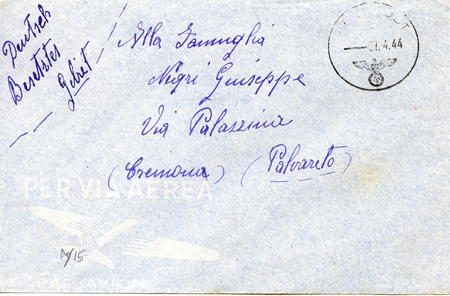 Deutsch
Besetztes
Gebiet
Alla Famiglia
Negri Giuseppe
Via Palazzina
(Cremona) (Palvareto)
PER VIA AEREA
PAR AVION
.4.44
A/15